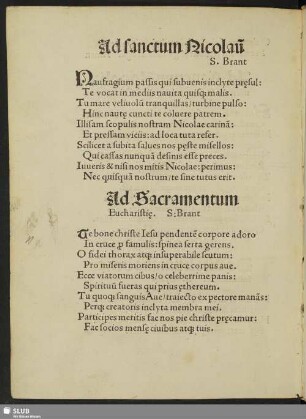 Ad sanctum Nicolaũ
S. Brant
Naufragium passis qui subuenis inclyte pręsul:
Te vocat in mediis nauita quisq; malis.
Tu mare veliuolũ tranquillas/turbine pulso:
Hinc nautę cuncti te coluere patrem.
Illisam scopulis nostram Nicolae carinã:
Et pressam viciis: ad loca tuta refer.
Scilicet a subita salues nos pęste misellos:
Qui cassas nunquã desinis esse preces.
Iuueris & nisi nos mitis Nicolae: perimus:
Nec quisquã nostrum/te sine tutus erit.
Ad Sacramentum
Eucharistię. S: Brant
Te bone christe Iesu pendentẽ corpore adoro
In cruce p famulis: spinea serta gerens.
O fidei thorax atq; insuperabile scutum:
Pro miseris moriens in cruce corpus aue.
Ecce viatorum cibus/o celeberrime panis:
Spirituũ fueras qui prius ęthereum.
Tu quoq; sanguis Aue/traiecto ex pectore manãs:
Perq; creatoris inclyta membra mei.
Participes meritis fac nos pie christe pręcamur:
Fac socios mensę ciuibus atq; tuis.
SLUB